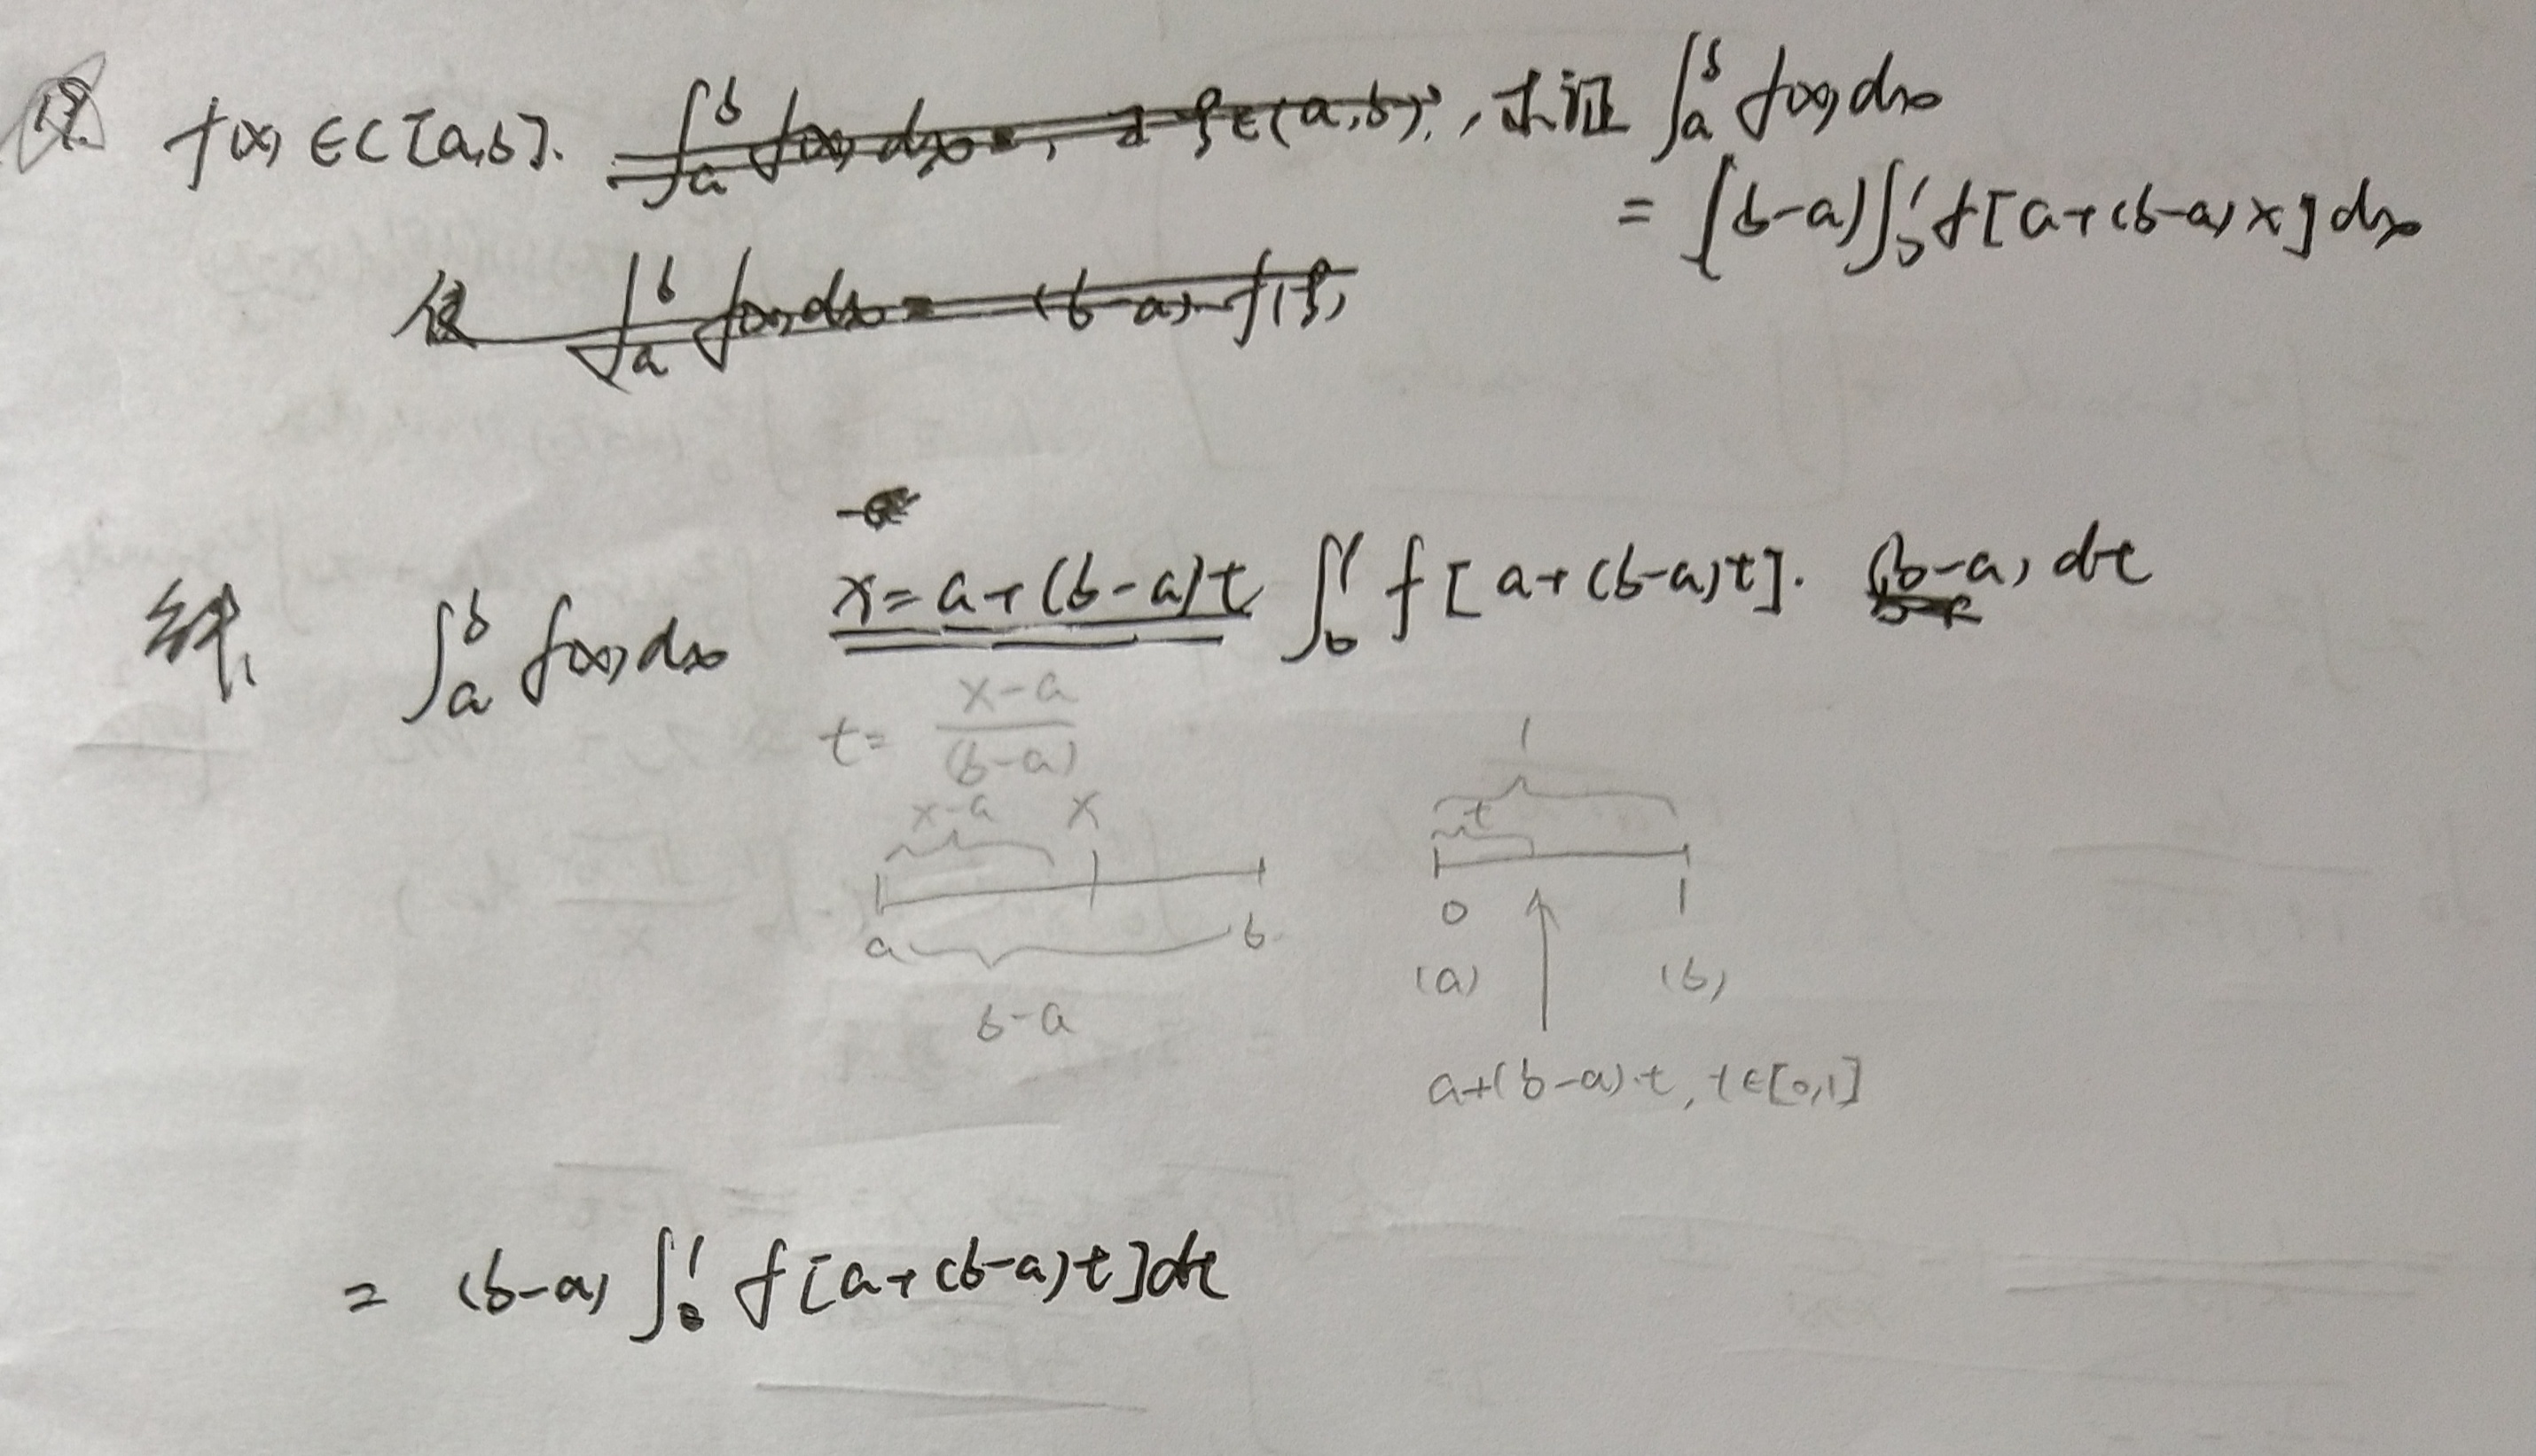 f(x)∈C[a,b]. ∫_a^b f(x)dx=, ξ∈(a,b), 求证 ∫_a^b f(x)dx
= (b-a)∫_0^1 f[a+(b-a)x]dx
使 ∫_a^b f(x)dx = (b-a)·f(ξ)
∫_a^b f(x)dx x=a+(b-a)t ∫_0^1 f[a+(b-a)t]·(b-a)dt
t= (x-a)/(b-a)
1
x-a x t
a b 0 1
b-a (a) (b)
a+(b-a)·t, t∈[0,1]
= (b-a) ∫_0^1 f[a+(b-a)t]dt